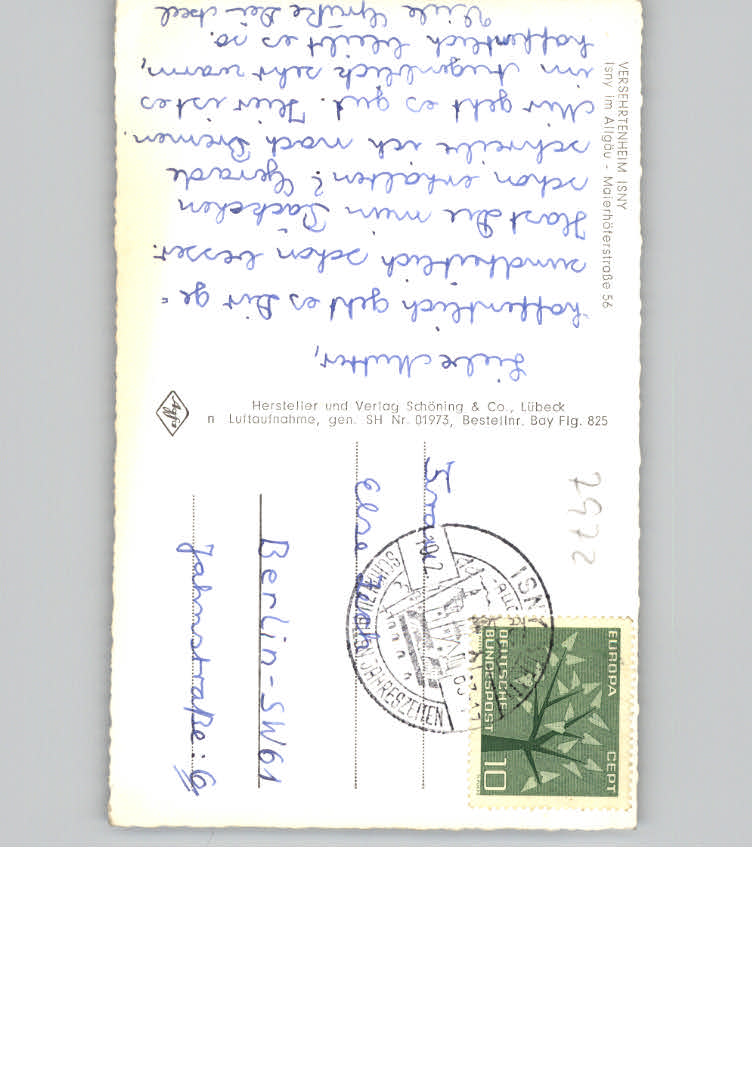 VERSEHRTENHEIM ISNY
Isny im Allgäu - Maierhöferstraße 56
Liebe Mutter,
hoffentlich geht es Dir ge=
sundheitlich schon besser.
Hast Du mein Päckchen
schon erhalten? Gerade
schreibe ich nach Bremen.
Mir geht es gut. Hier ist es
im Augenblick sehr warm,
hoffentlich bleibt es so.
Viele Grüße Dein
Hersteller und Verlag Schöning & Co., Lübeck
n Luftaufnahme, gen. SH Nr. 01973, Bestellnr. Bay Flg. 825
Agfa
Frau
Else
Berlin-SW61
Jahnstraße: 6
EUROPA CEPT
DEUTSCHE
BUNDESPOST
10
ISNY
JAHRESZEITEN